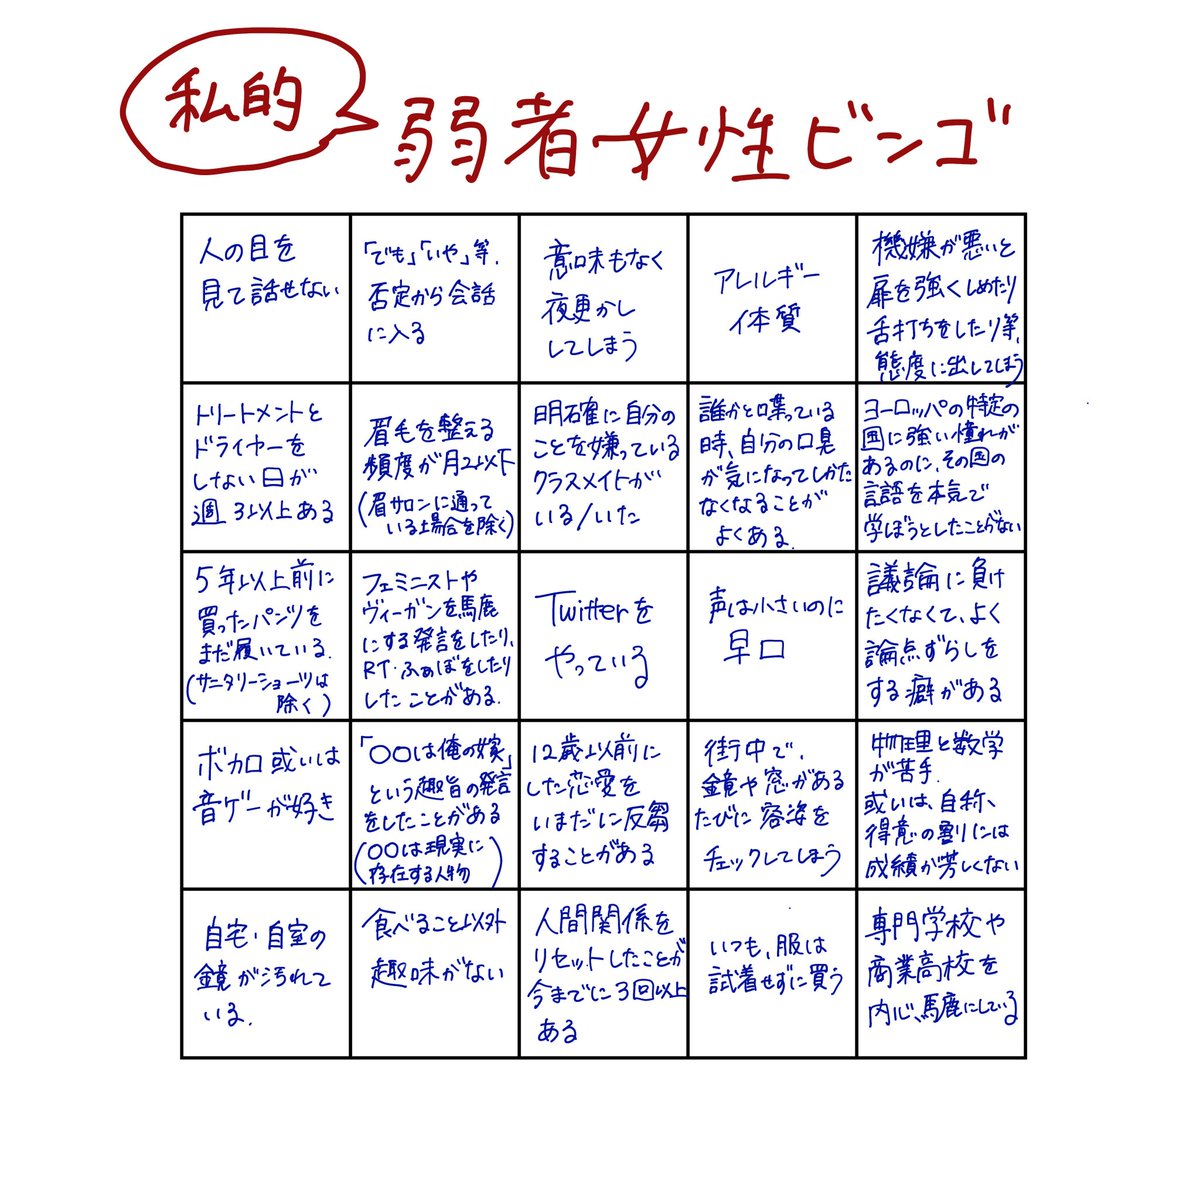 私的
弱者女性ビンゴ
人の目を
見て話せない
「でも」「いや」等、
否定から会話
に入る
意味もなく
夜更かし
してしまう
アレルギー
体質
機嫌が悪いと
扉を強くしめたり
舌打ちをしたり等、
態度に出してしまう
トリートメントと
ドライヤーを
しない日が
週3以上ある
眉毛を整える
頻度が月2以下
(眉サロンに通って
いる場合を除く)
明確に自分の
ことを嫌っている
クラスメイトが
いる/いた
誰かと喋っている
時、自分の口臭
が気になってしかた
なくなることが
よくある。
ヨーロッパの特定の
国に強い憧れが
あるのに、その国の
言語を本気で
学ぼうとしたことがない
5年以上前に
買ったパンツを
まだ履いている。
(サニタリーショーツは
除く)
フェミニストや
ヴィーガンを馬鹿
にする発言をしたり、
RT・ふぁぼをしたり
したことがある。
Twitterを
やっている
声は小さいのに
早口
議論に負け
たくなくて、よく
論点ずらしを
する癖がある
ボカロ或いは
音ゲーが好き
「〇〇は俺の嫁」
という趣旨の発言
をしたことがある
(〇〇は現実に
存在する人物)
12歳以前に
した恋愛を
いまだに反芻
することがある
街中で、
鏡や窓がある
たびに容姿を
チェックしてしまう
物理と数学
が苦手。
或いは、自称、
得意の割りには
成績が芳しくない
自宅・自室の
鏡が汚れて
いる。
食べること以外
趣味がない
人間関係を
リセットしたことが
今までに3回以上
ある
いつも、服は
試着せずに買う
専門学校や
商業高校を
内心、馬鹿にしている